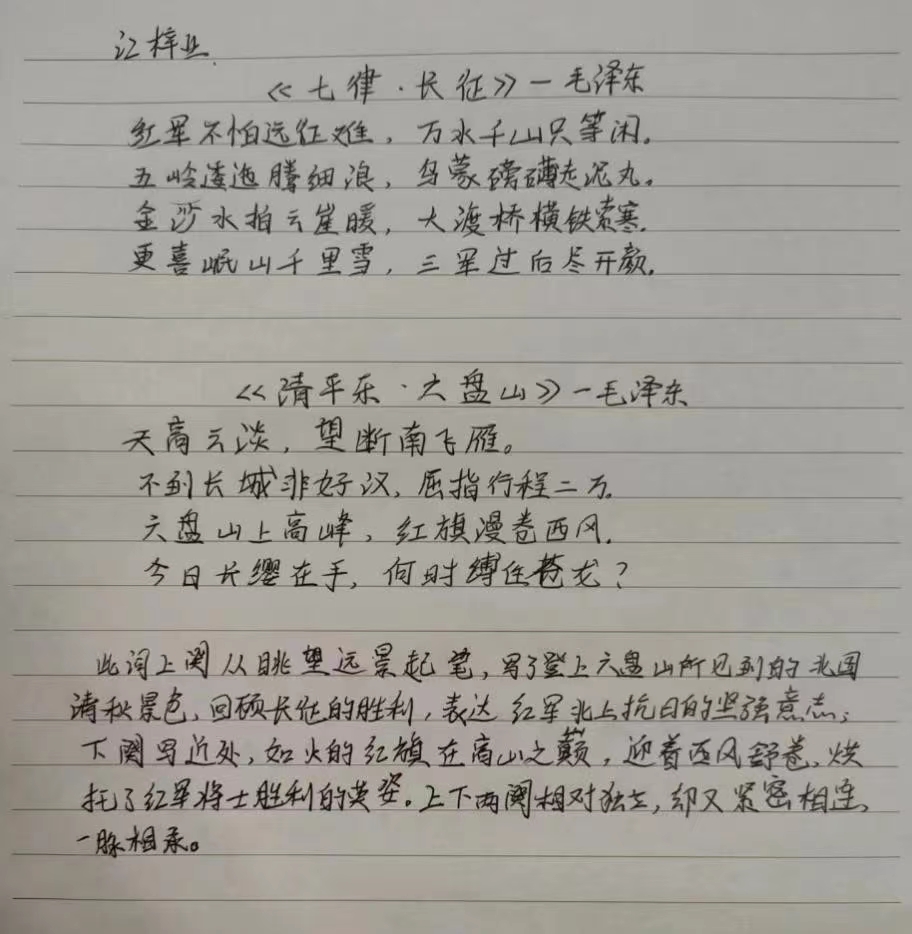 江梓业
《七律·长征》—毛泽东
红军不怕远征难，万水千山只等闲。
五岭逶迤腾细浪，乌蒙磅礴走泥丸。
金沙水拍云崖暖，大渡桥横铁索寒。
更喜岷山千里雪，三军过后尽开颜。
《清平乐·六盘山》—毛泽东
天高云淡，望断南飞雁。
不到长城非好汉，屈指行程二万。
六盘山上高峰，红旗漫卷西风。
今日长缨在手，何时缚住苍龙？
此词上阕从眺望远景起笔，写了登上六盘山所见到的北国
清秋景色，回顾长征的胜利，表达红军北上抗日的坚强意志；
下阕写近处，如火的红旗在高山之巅，迎着西风舒卷，烘
托了红军将士胜利的英姿。上下两阕相对独立，却又紧密相连，
一脉相承。